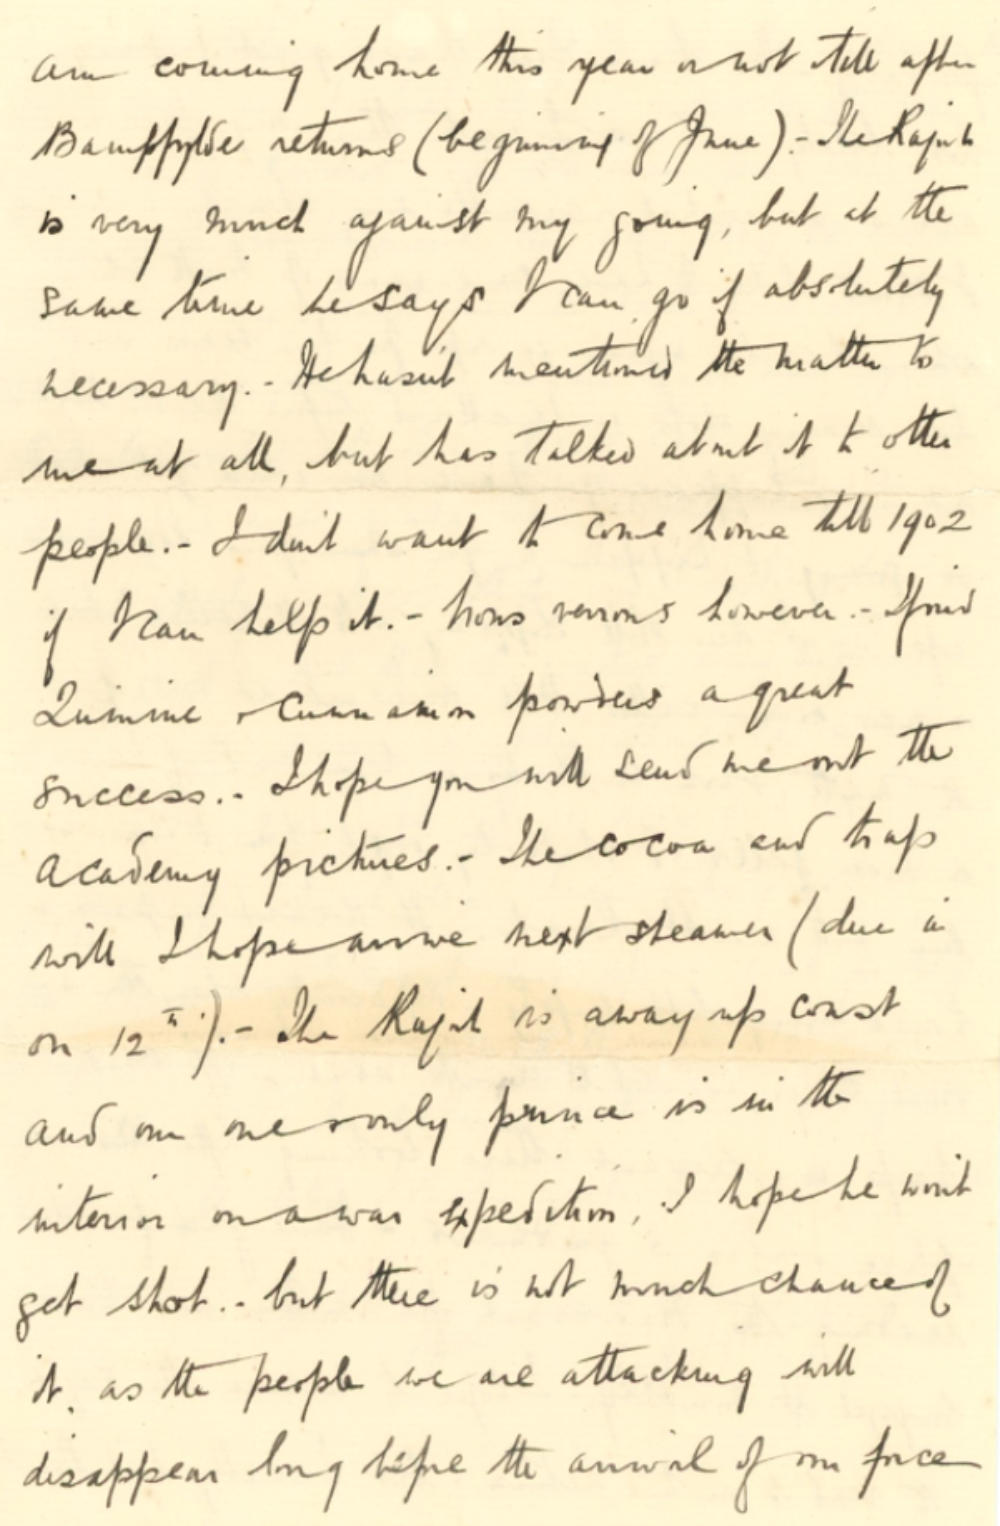 am coming home this year or not till after
Bampfylde returns (beginning of June).- The Rajah
is very much against my going, but at the
same time he says I can go if absolutely
necessary.- He hasn't mentioned the matter to
me at all, but has talked about it to other
people.- I don't want to come home till 1902
if I can help it.- Nous verrons however.- I find
Quinine & Cinnamon powders a great
success.- I hope you will send me out the
Academy pictures.- The cocoa and traps
will I hope arrive next steamer (due in
on 12th).- The Rajah is away up coast
and our one & only prince is in the
interior on a war expedition, I hope he won't
get shot.- but there is not much chance of
it, as the people we are attacking will
disappear long before the arrival of our force